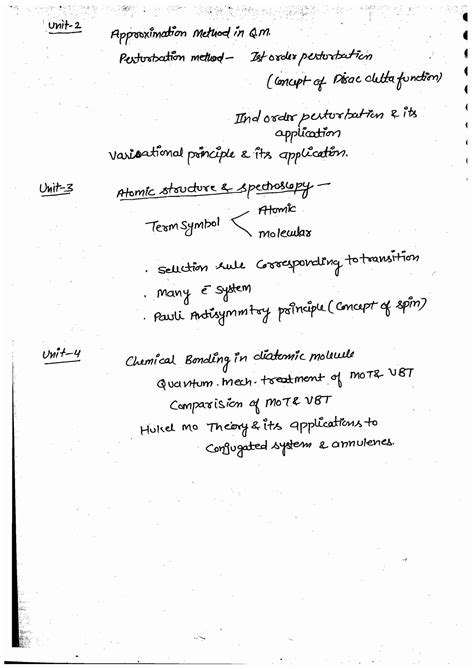 Unit-2
Approximation Method in Q.M.
Perturbation method - Ist order perturbation
(Concept of Dirac delta function)
IInd order perturbation & its
application
Variational principle & its application.
Unit-3
Atomic structure & spectroscopy -
Term Symbol
Atomic
Molecular
. Selection rule Corresponding to transition
. Many e⁻ System
. Pauli Antisymmtry principle (Concept of spin)
Unit-4
Chemical Bonding in diatomic molecule
Quantum. Mech. treatment of MOT & VBT
Comparision of MOT & VBT
Hukel MO Theory & its applications to
Conjugated system & annulenes.